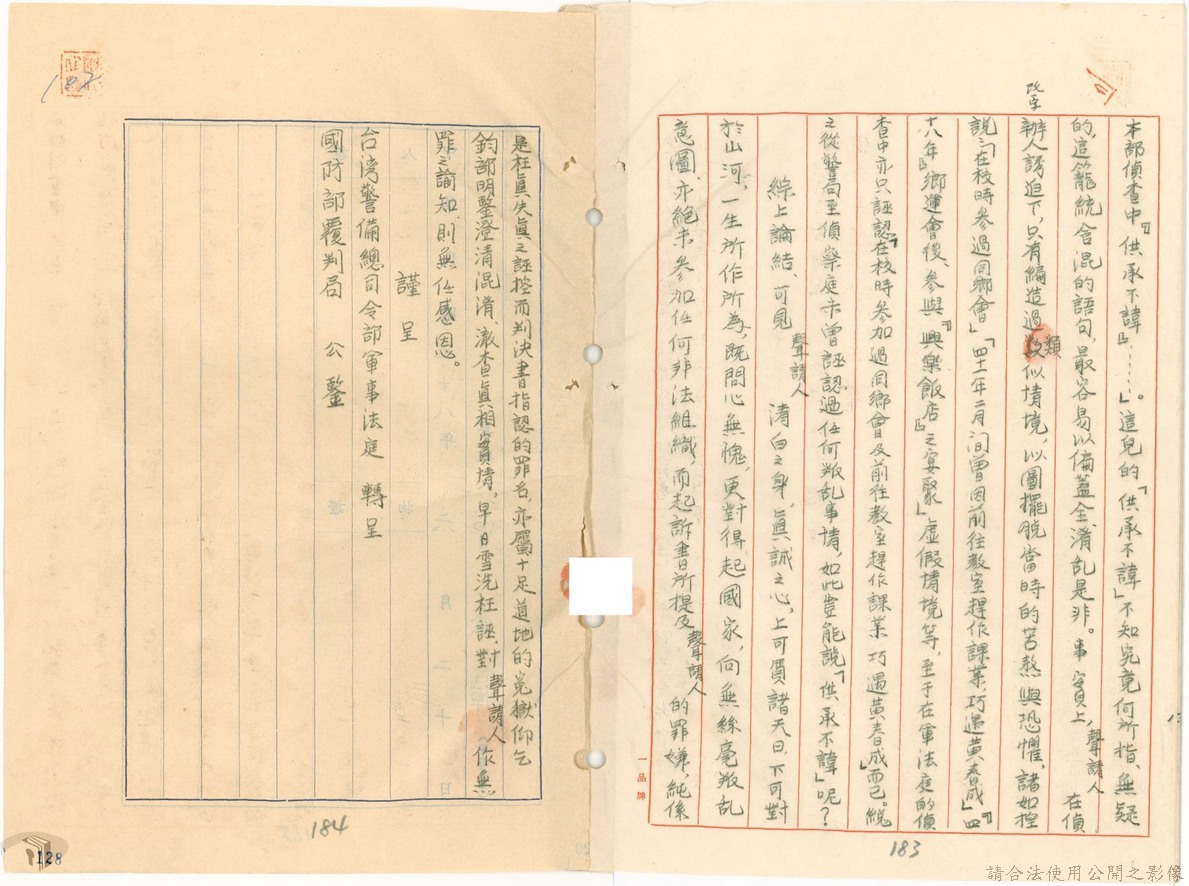 本部偵查中『供承不諱』……」。這兒的「供承不諱」不知究竟何所指、無疑
的,這籠統含混的語句,最容易以偏蓋全淆乱是非。事實上,聲請人在偵
辦人誘迫下,只有編造過類似情境,以圖擺脫當時的苦熬與恐懼,諸如控
說:「在校時參過同鄉會」「四十一年二月間曾因前往教室趕作課業,巧遇黃春成」「四
十八年』鄉運會後、參與『興樂飯店』之宴聚」虛假情境等,至于在軍法庭的偵
查中亦只誣認「在校時參加過同鄉會及前往教室趕作課業巧遇黃春成」而已。總
之從警局至偵察庭未曾誣認過任何叛乱事情,如此豈能說「供承不諱」呢?
綜上論結,可見聲請人清白之身,真誠之心,上可質諸天日,下可對
於山河,一生所作所為,既問心無愧,更對得起國家,向無絲毫叛乱
意圖,亦絕未參加任何非法組織,而起訴書所提及聲請人的罪嫌,純係
改字
一品牌
183
是枉真失真之誣控而判決書指認的罪名,亦屬十足道地的冤獄仰乞
鈞部明鑒澄清混淆,澈查真相實情,早日雪洗枉誣,對聲請人作無
罪之諭知,則無任感恩。
謹呈
台灣警備總司令部軍事法庭 轉呈
國防部覆判局 公鑒
184
128
請合法使用公開之影像